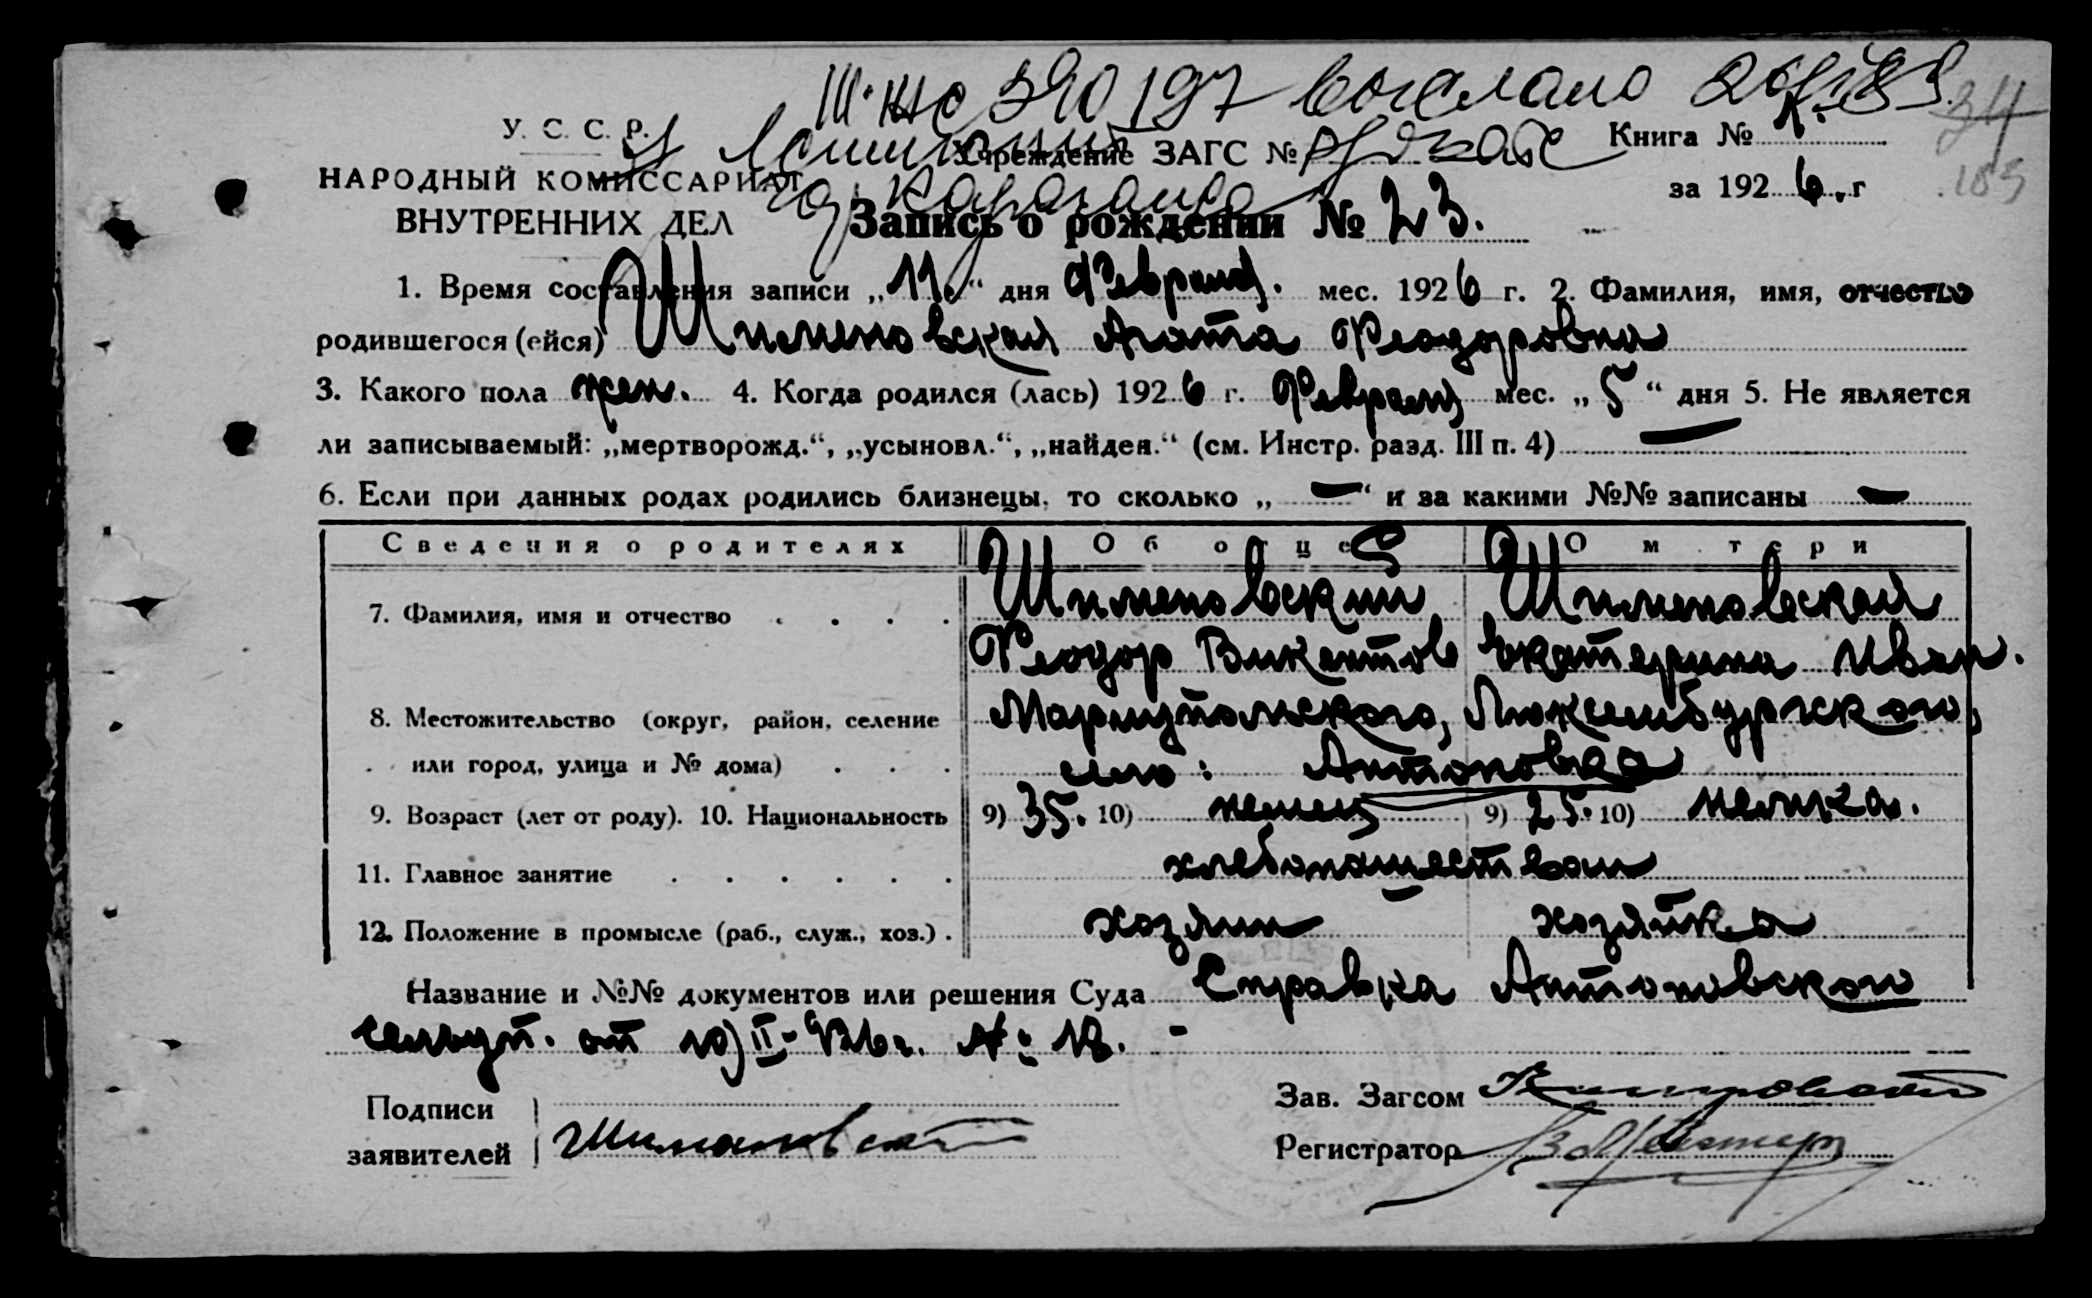 III-ЖС № 390197 выслано
У. С. С. Р.
Учреждение ЗАГС №
Книга № 1.
34
НАРОДНЫЙ КОМИССАРИАТ
за 1926. г
103
ВНУТРЕННИХ ДЕЛ
гор Караганда
Запись о рождении № 23.
1. Время составления записи „11.“ дня Февраля. мес. 1926 г. 2. Фамилия, имя, отчество
родившегося (ейся) Шименовская Агата Феодоровна
3. Какого пола жен. 4. Когда родился (лась) 1926 г. Февраля мес. „5“ дня 5. Не является
ли записываемый: „мертворожд.“, „усыновл.“, „найден.“ (см. Инстр. разд. III п. 4) —
6. Если при данных родах родились близнецы, то сколько „—“ и за какими №№ записаны —
Сведения о родителях Об отце О матери
7. Фамилия, имя и отчество Шименовский Шименовская
Феодор Викентов Екатерина Иван.
8. Местожительство (округ, район, селение Мариупольского, Люксембургского,
или город, улица и № дома) село: Антоновка
9. Возраст (лет от роду). 10. Национальность 9) 35. 10) немец 9) 25. 10) немка.
11. Главное занятие хлебопашеством
12. Положение в промысле (раб., служ., хоз.) хозяин хозяйка
Название и №№ документов или решения Суда Справка Антоновского
сельуп. от 10/II-926 г. № 18. -
Подписи
Зав. Загсом
заявителей Шимановский
Регистратор